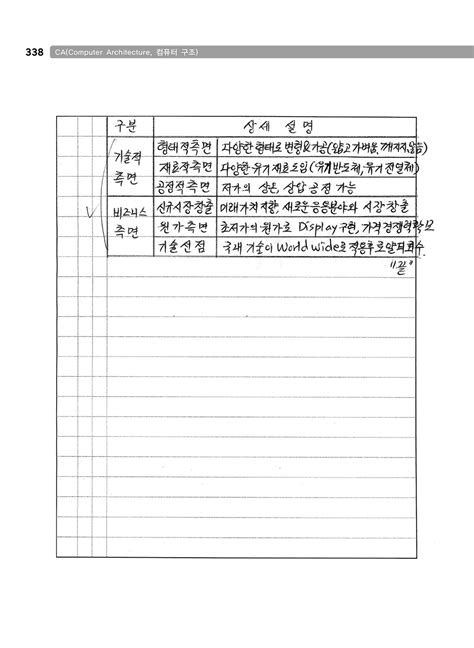 338 CA(Computer Architecture, 컴퓨터 구조)
구분 상세 설명
기술적 측면 형태적측면 다양한 형태로 변형&가공(얇고 가벼움, 깨지지않음)
재료적측면 다양한 유기재료도입(유기반도체, 유기전열체)
공정적측면 저가의 상온, 상압 공정 가능
비즈니스 측면 신규시장창출 미래가치지향, 새로운 응용분야와 시장창출
원가측면 초저가의 원가로 Display구현, 가격경쟁력확보
기술선점 국내 기술이 World wide로 적용후 로얄티회수.
"끝"